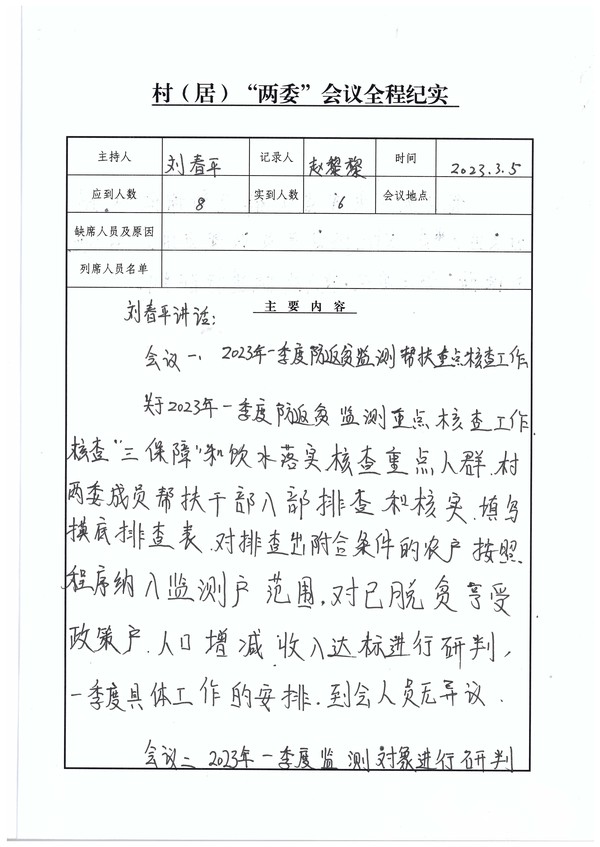 村（居）“两委”会议全程纪实
主持人 刘春平 记录人 赵黎黎 时间 2023.3.5
应到人数 8 实到人数 6 会议地点
缺席人员及原因
列席人员名单
主要内容
刘春平讲话：
会议一、2023年一季度防返贫监测帮扶重点核查工作
关于2023年一季度防返贫监测重点核查工作
核查“三保障”和饮水落实核查重点人群.村
两委成员帮扶干部入部排查和核实.填写
摸底排查表.对排查出附合条件的农户按照
程序纳入监测户范围,对已脱贫享受
政策户.人口增减收入达标进行研判,
一季度具体工作的安排.到会人员无异议.
会议二2023年一季度监测对象进行研判